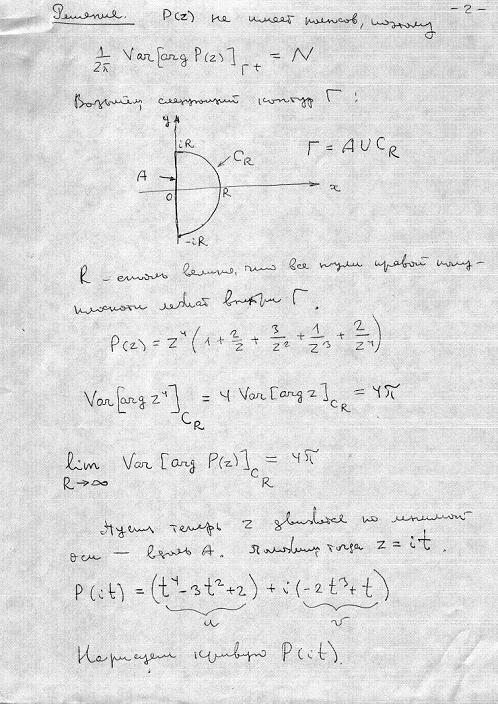 - 2 -
Решение. P(z) не имеет полюсов, поэтому
1/2π Var[arg P(z)]_Γ+ = N
Возьмём следующий контур Γ:
y
iR
C_R
Γ = A ∪ C_R
A
0
R
x
-iR
R – столь велико, что все нули правой полу-
плоскости лежат внутри Γ.
P(z) = z⁴(1 + 2/z + 3/z² + 1/z³ + 2/z⁴)
Var[arg z⁴]_C_R = 4 Var[arg z]_C_R = 4π
lim_{R→∞} Var[arg P(z)]_C_R = 4π
Пусть теперь z движется по мнимой
оси — вдоль A. Положим тогда z = it.
P(it) = (t⁴-3t²+2) + i(-2t³+t)
u v
Нарисуем кривую P(it).